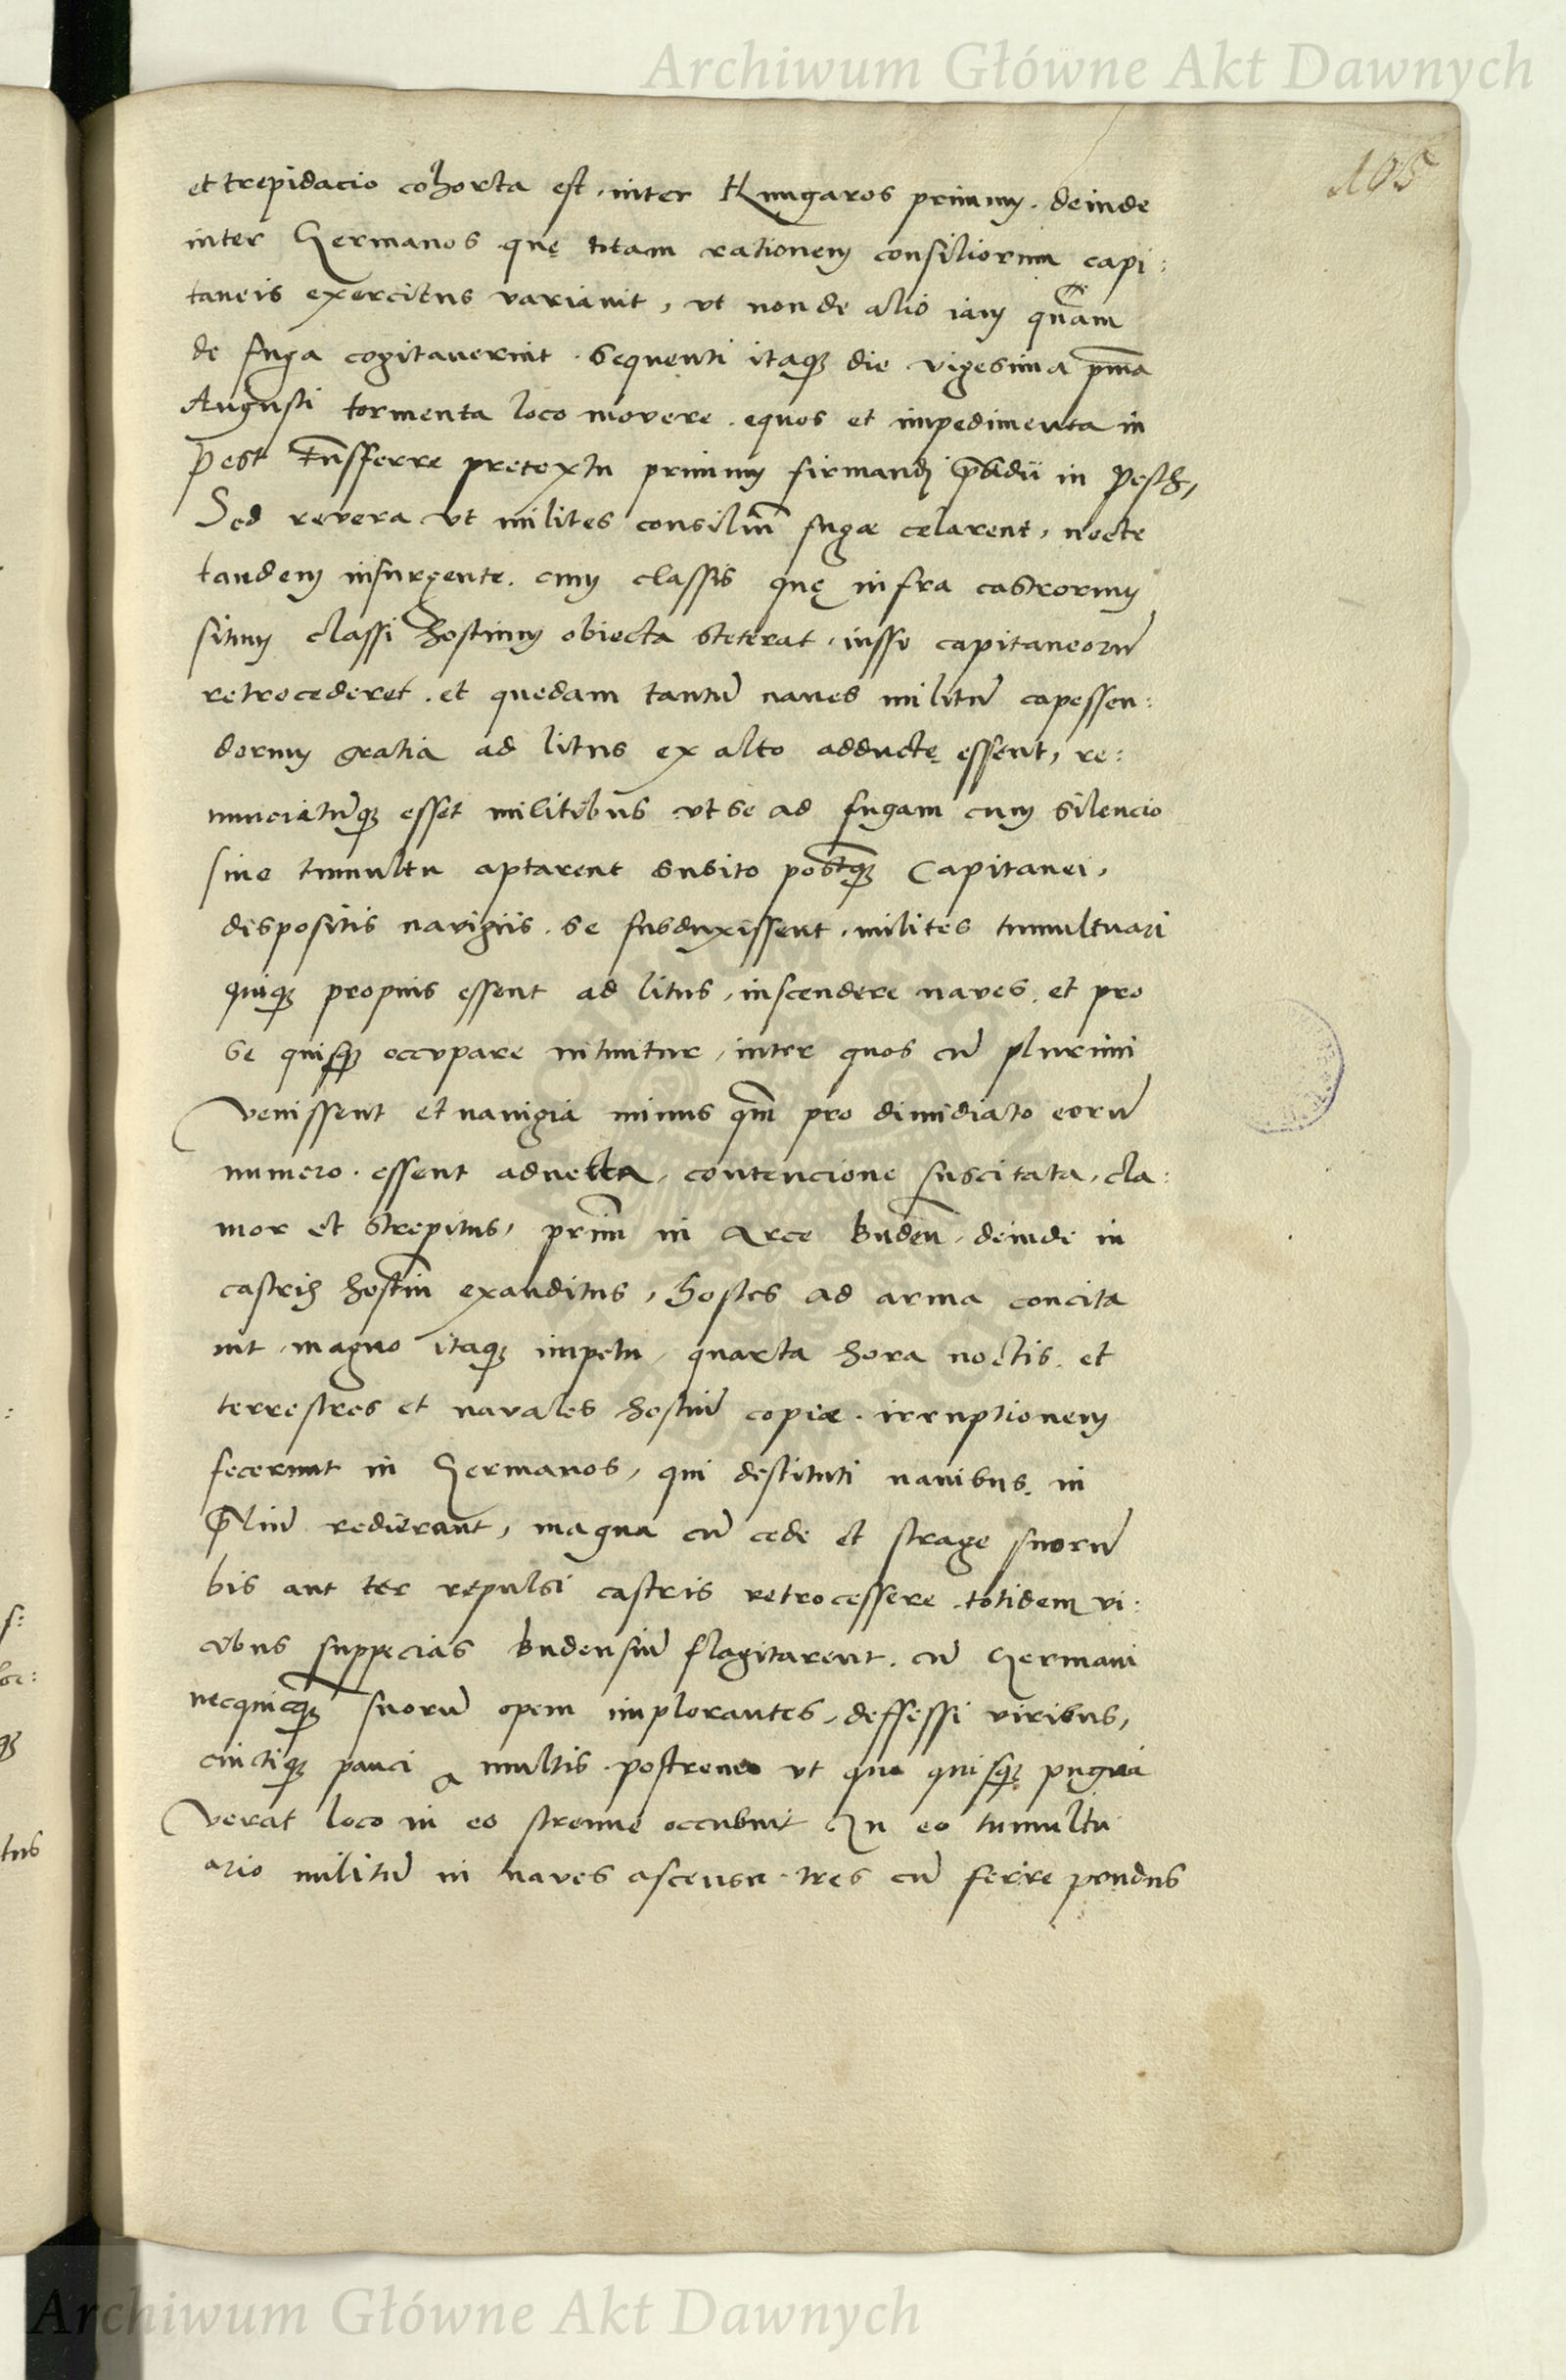 Archiwum Główne Akt Dawnych
105
et trepidacio cohorta est, inter Hungaros primum. deinde
inter Germanos quę totam rationem consiliorum capi:
taneis exercitus variavit, ut non de alio iam quam
de fuga cogitaverint. Sequenti itaq; die vigesima p̃ma
Augusti tormenta loco movere. equos et impedimenta in
Pest trãsferre pretextu primum firmandi p̃sidii in Pesth,
Sed revera ut milites consiliũ fugæ celarent, nocte
tandem insurgente. cum classis quę infra castrorum
situm classi hostium obiecta steterat, iussu capitaneorũ
retrocederet. et quedam tantũ naves militũ capessen:
dorum gratia ad litus ex alto adductę essent, re:
nunciatũq; esset militibus ut se ad fugam cum silencio
sine tumultu aptarent subito postq̃ Capitanei,
dispositis navigiis. se subduxissent, milites tumultuari
quiq; propius essent ad litus, inscendere naves. et pro
se quisq; occupare nituntur, inter quos cũ plurimi
venissent et navigia minus q̃m pro dimidiato eorũ
numero. essent advecta, contencione suscitata, cla:
mor et strepitus, primũ in Arce Budeñ, deinde in
castris hostiũ exauditus, hostes ad arma concita
vit, magno itaq; impetu, quarta hora noctis. et
terrestres et navales hostiũ copiæ. irruptionem
fecerunt in Germanos, qui destituti navibus. in
p̃liũ redierant, magna cũ cede et strage suorũ
bis aut ter repulsi castris retrocessere. totidem vi:
cibus suppecias Budensiũ flagitarent. cũ Germani
necquicq̃ suorũ opem implorantes, deffessi viribus,
cinctiq; pauci a multis postremo ut quo quisq; pugna
verat loco in eo strenue occubuit In eo tumultu
ario militũ in naves ascensu. tres cũ ferre pondus
Archiwum Główne Akt Dawnych